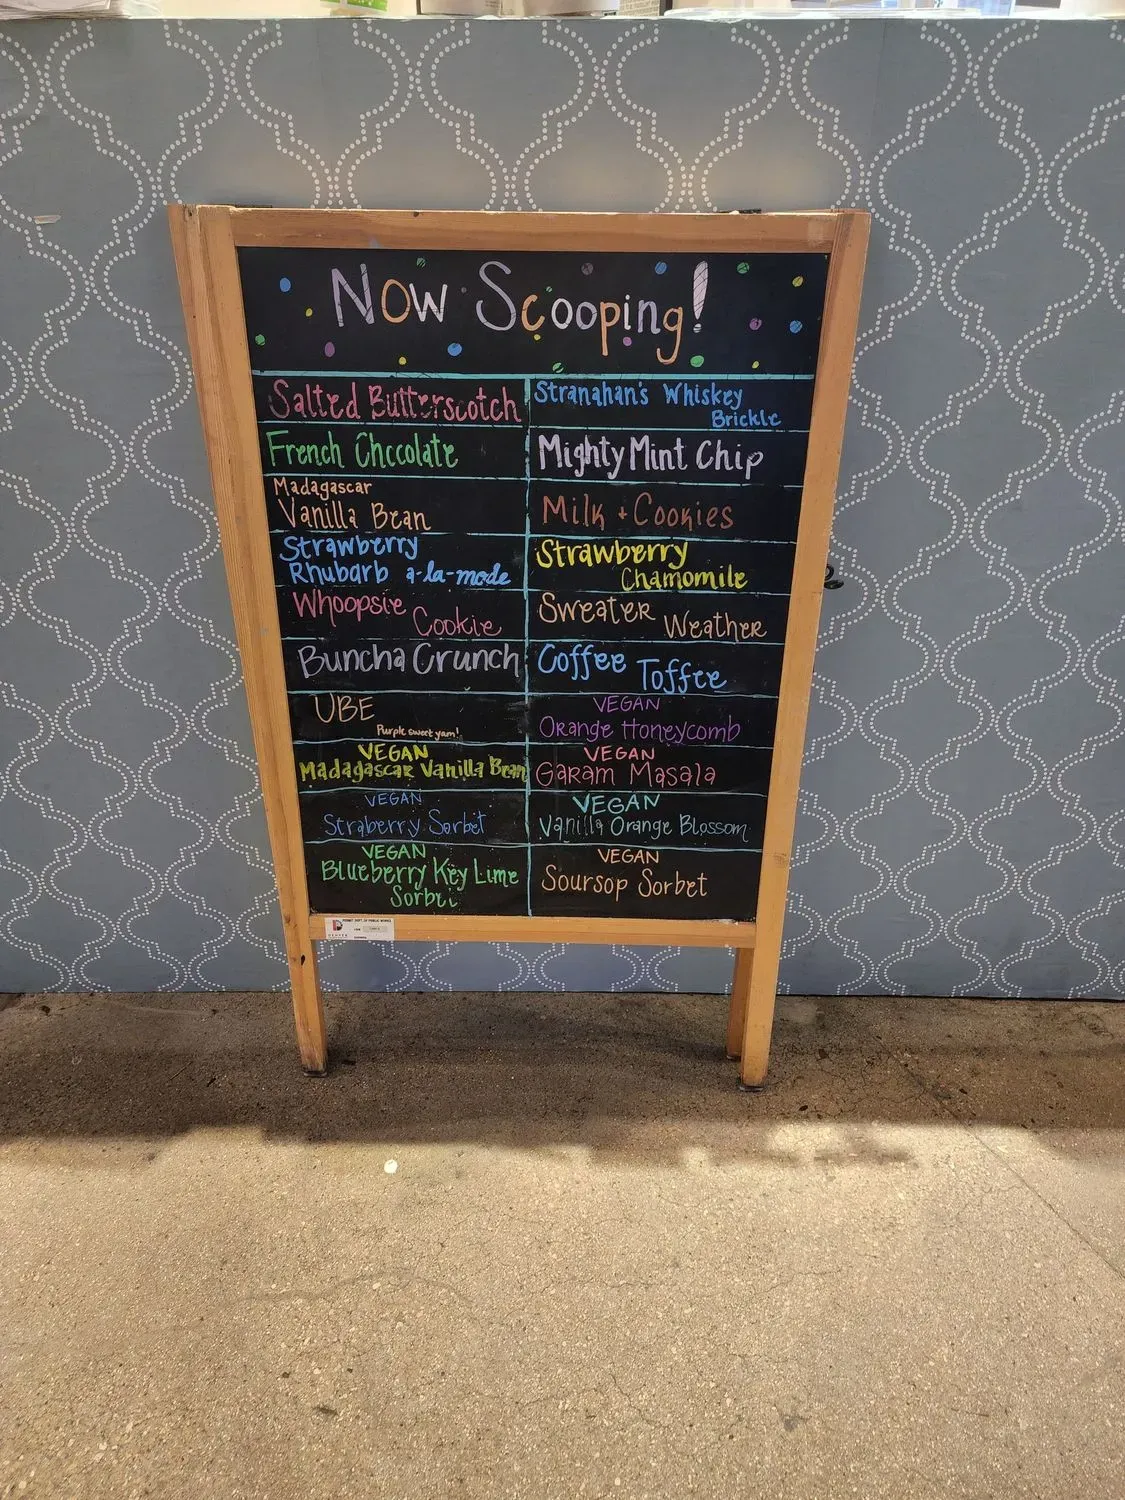 Now Scooping!
Salted Butterscotch
French Chocolate
Madagascar
Vanilla Bean
Strawberry
Rhubarb a-la-mode
Whoopsie Cookie
Buncha Crunch
UBE
Purple sweet yam!
VEGAN
Madagascar Vanilla Bean
VEGAN
Straberry Sorbet
VEGAN
Blueberry Key Lime
Sorbet
Stranahan's Whiskey
Brickle
Mighty Mint Chip
Milk + Cookies
Strawberry
Chamomile
Sweater Weather
Coffee Toffee
VEGAN
Orange Honeycomb
VEGAN
Garam Masala
VEGAN
Vanilla Orange Blossom
VEGAN
Soursop Sorbet
PERMIT DEPT. OF PUBLIC WORKS
DENVER